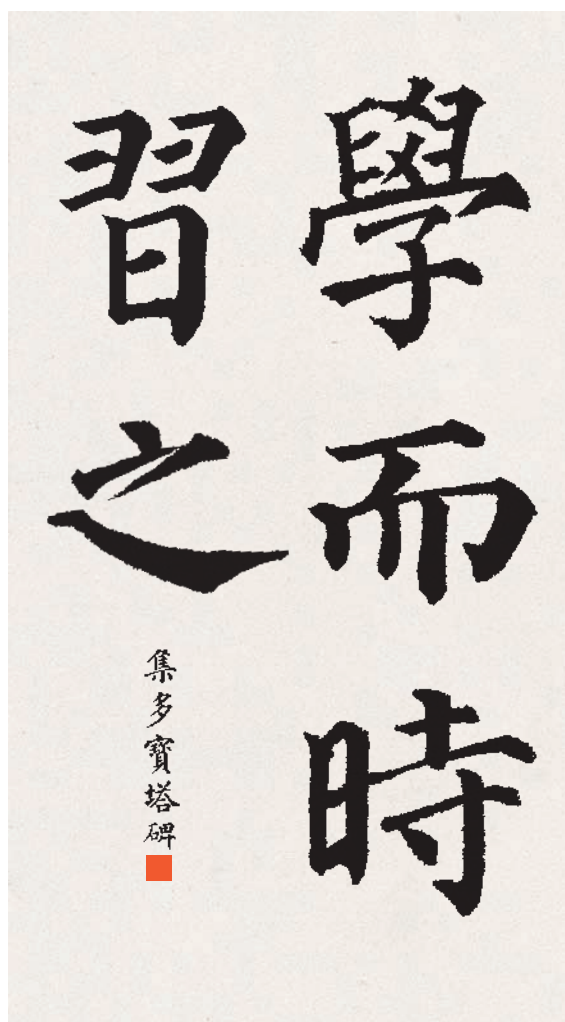 學而時
習之
集多寶塔碑